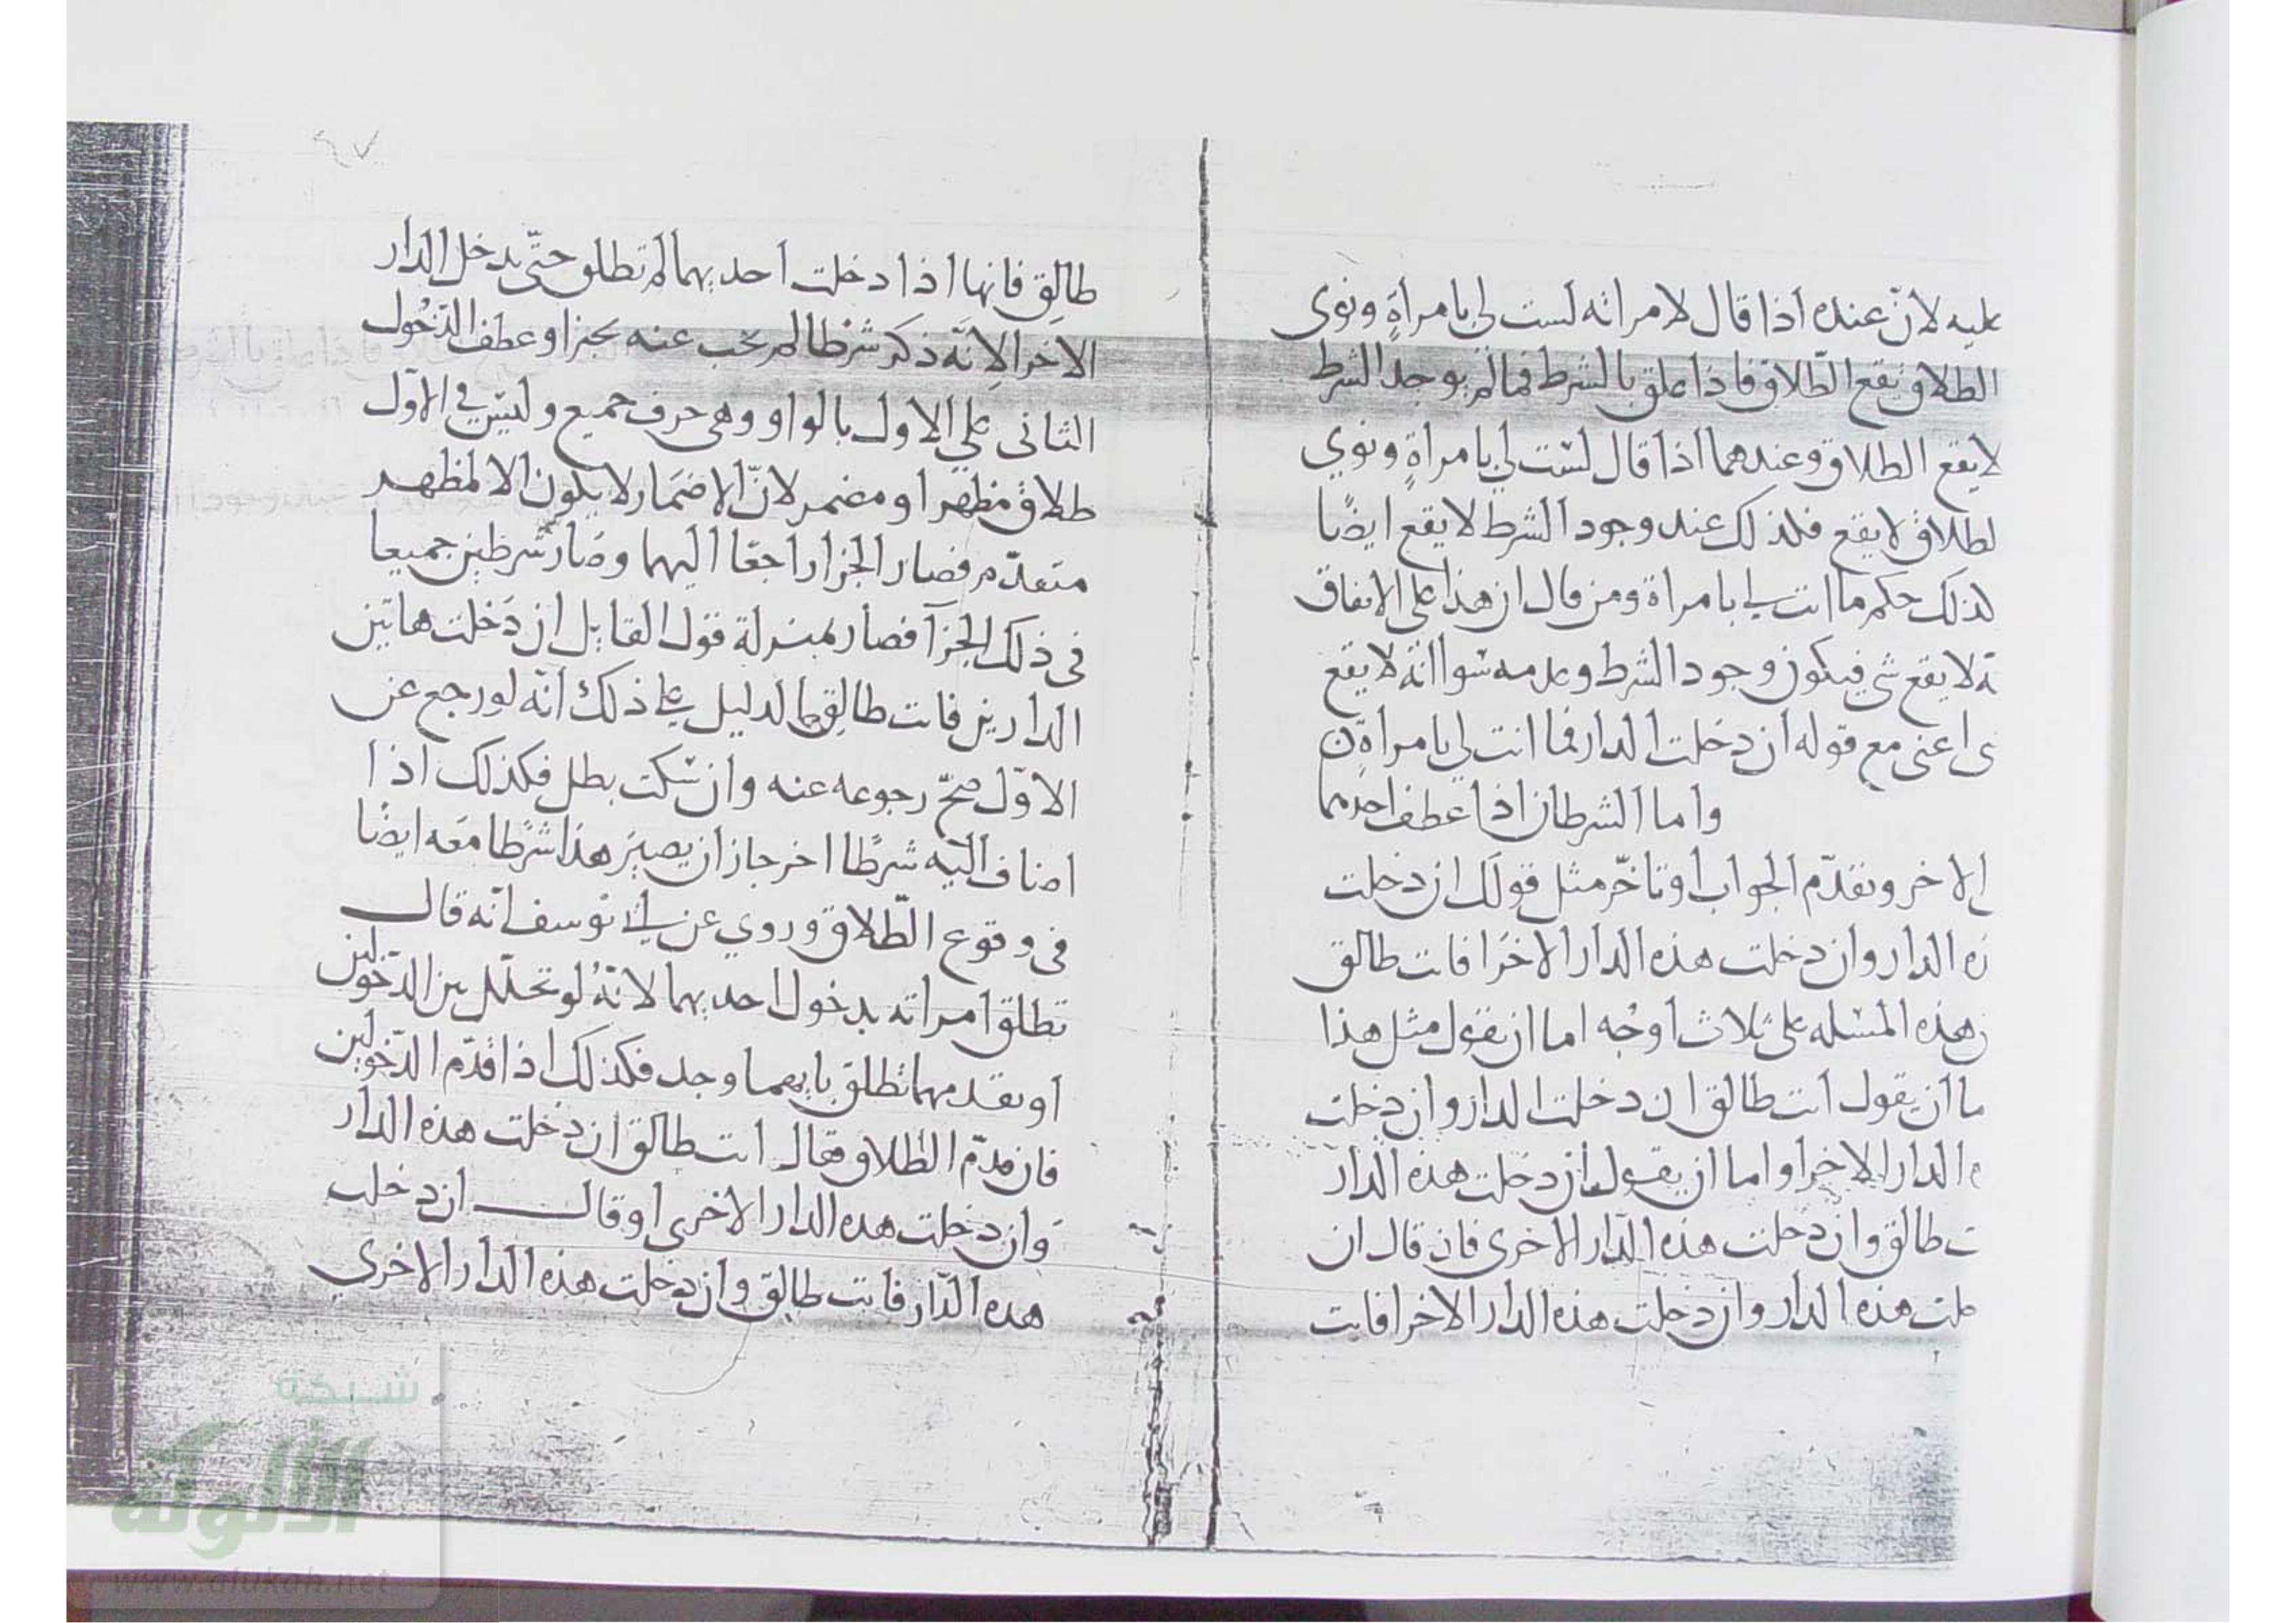 عليه لانّ عنده اذا قال لامراته لست لي بامراةٍ ونوى
الطلاق يقع الطّلاق فاذا علق بالشرط فما لم يوجد الشرط
لا يقع الطلاق وعندهما اذا قال لست لي بامراةٍ ونوي
لطلاق لا يقع فلذلك عند وجود الشرط لا يقع ايضًا
لذلك حكم ما انت لي بامراة ومن قال ان هذا على الاتفاق
ه لا يقع شي فيكون وجود الشرط وعدمه سوا انّه لا يقع
ى اعني مع قوله ان دخلت الدار فما انت لي بامراةٍ
واما الشرطان اذا عطف احدهما
الاخر وتقدّم الجواب او تاخّر مثل قولك ان دخلت
ه الدار وان دخلت هذه الدار الاخرا فانت طالق
ن هذه المسئله على ثلاث اوجه اما ان يقول مثل هذا
ما ان يقول انت طالق ان دخلت الدار وان دخلت
ه الدار الاخرا واما ان يقول ان دخلت هذه الدار
ت طالق وان دخلت هذه الدّار الاخرى فان قال ان
خلت هذه الدار وان دخلت هذه الدار الاخرا فانت
طالق فانها اذا دخلت احديهما لم تطلق حتّى يدخل الدار
الاخرا لانّه ذكر شرطا لم يجب عنه بجزا وعطف الدّخول
الثاني علي الاول بالواو وهي حرف جميع وليس في الاوّل
طلاق مظهر او مضمر لانّ الاضمار لا يكون الا لمظهر
متقدّم فصار الجزا راجعًا اليهما وصار شرطين جميعا
في ذلك الجزآ فصار بمنزلة قول القايل ان دخلت هاتين
الدارين فانت طالق والدليل على ذلك انّه لو رجع عن
الاوّل صحّ رجوعه عنه وان سكت بطل فكذلك اذا
اضاف اليه شرطًا اخر جاز ان يصير هذا شرطا معه ايضًا
في وقوع الطّلاق وروي عن ابي يوسف انّه قال
تطلق امراته بدخول احديهما لانّهُ لو تخلّل بين الدّخولين
او تقدمهما تطلق بايهما وجد فكذلك اذا قدّم الدّخولين
فان قدّم الطلاق فقال انت طالق ان دخلت هذه الدار
وان دخلت هذه الدار الاخرى او قال ان دخلت
هذه الدّار فانت طالق وان دخلت هذه الدار الاخري
شبكة
الألوكة
www.alukah.net